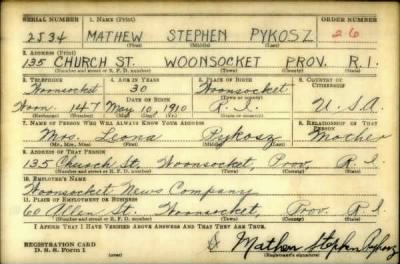 SERIAL NUMBER 1. NAME (Print) ORDER NUMBER
2534 MATHEW STEPHEN PYKOSZ 26
(First) (Middle) (Last)
2. ADDRESS (Print)
135 CHURCH ST. WOONSOCKET PROV. R.I.
(Number and street or R. F. D. number) (Town) (County) (State)
3. TELEPHONE 4. AGE IN YEARS 5. PLACE OF BIRTH 6. COUNTRY OF CITIZENSHIP
Woonsocket 30 Woonsocket
DATE OF BIRTH (Town or county)
Woon. 147 May 10, 1910 R. I. U.S.A.
(Exchange) (Number) (Mo.) (Day) (Yr.) (State or country)
7. NAME OF PERSON WHO WILL ALWAYS KNOW YOUR ADDRESS 8. RELATIONSHIP OF THAT PERSON
Mrs. Leona Pykosz Mother
(Mr., Mrs., Miss) (First) (Middle) (Last)
9. ADDRESS OF THAT PERSON
135 Church St, Woonsocket, Prov. R. I.
(Number and street or R. F. D. number) (Town) (County) (State)
10. EMPLOYER'S NAME
Woonsocket News Company
11. PLACE OF EMPLOYMENT OR BUSINESS
60 Allen St., Woonsocket, Prov. R. I.
(Number and street or R. F. D. number) (Town) (County) (State)
I AFFIRM THAT I HAVE VERIFIED ABOVE ANSWERS AND THAT THEY ARE TRUE.
REGISTRATION CARD Mathew Stephen Pykosz
D. S. S. Form 1 (over) (Registrant's signature)